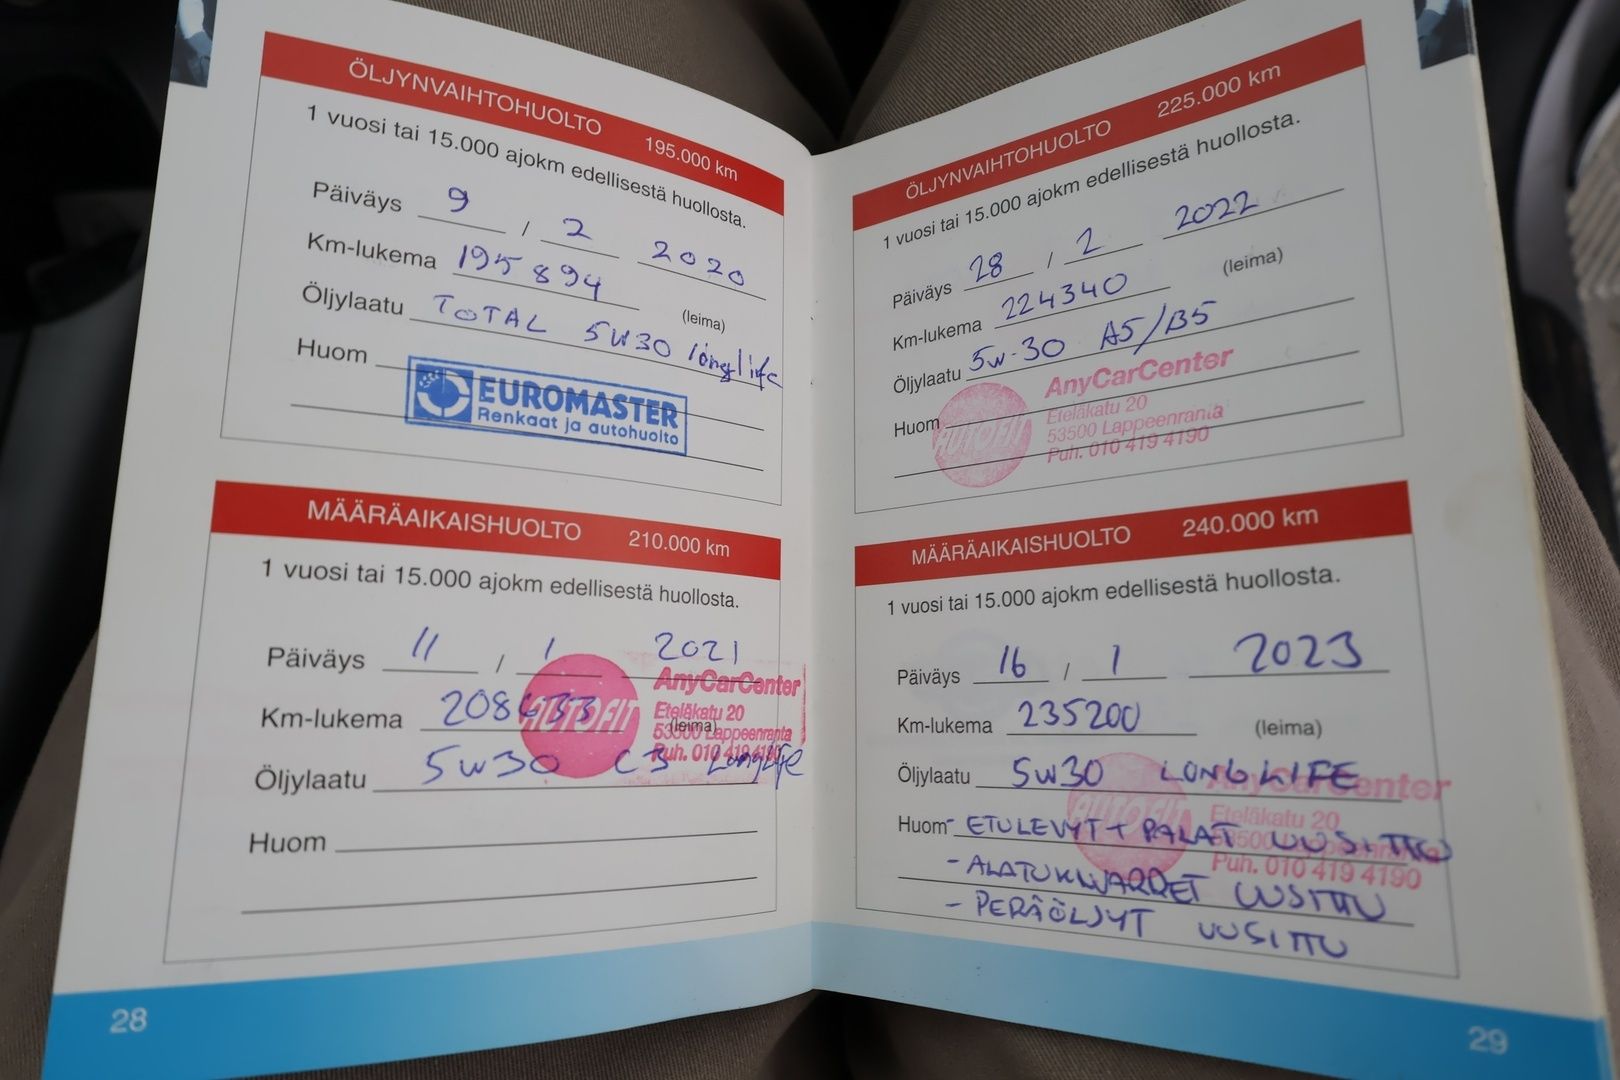 ÖLJYNVAIHTOHUOLTO 195.000 km
1 vuosi tai 15.000 ajokm edellisestä huollosta.
Päiväys 9 / 2 2020
Km-lukema 195 894
(leima)
Öljylaatu TOTAL 5W30 longlife
Huom
EUROMASTER
Renkaat ja autohuolto
MÄÄRÄAIKAISHUOLTO 210.000 km
1 vuosi tai 15.000 ajokm edellisestä huollosta.
Päiväys 11 / 1 2021
Km-lukema
(leima)
AUTOFIT
AnyCarCenter
Eteläkatu 20
53500 Lappeenranta
Puh. 010 419 4190
Öljylaatu 5W30 C3 Longlife
Huom
28
ÖLJYNVAIHTOHUOLTO 225.000 km
1 vuosi tai 15.000 ajokm edellisestä huollosta.
Päiväys 28 / 2 2022
Km-lukema 224340
(leima)
Öljylaatu 5W-30 A5/B5
Huom
AUTOFIT
AnyCarCenter
Eteläkatu 20
53500 Lappeenranta
Puh. 010 419 4190
MÄÄRÄAIKAISHUOLTO 240.000 km
1 vuosi tai 15.000 ajokm edellisestä huollosta.
Päiväys 16 / 1 2023
Km-lukema 235200
(leima)
Öljylaatu 5W30 LONGLIFE
Huom - ETULEVYT + PALAT UUSITTU
- ALATUKIVARRET UUSITTU
- PERÄÖLJYT UUSITTU
AUTOFIT
AnyCarCenter
Eteläkatu 20
53500 Lappeenranta
Puh. 010 419 4190
29